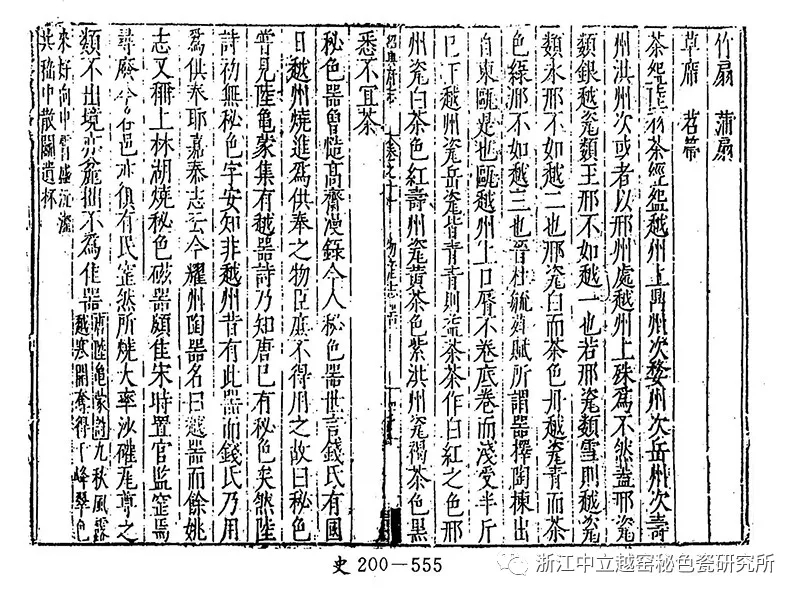 竹扇　蒲扇
草席　苕帚
茶碗陸羽茶經盌越州上鼎州次婺州次岳州次壽
州洪州次或者以邢州處越州上殊為不然葢邢瓷
類銀越瓷類玉邢不如越一也若邢瓷類雪則越瓷
類氷邢不如越二也邢瓷白而茶色丹越瓷青而茶
色綠邢不如越三也晉杜毓荈賦所謂器擇陶揀出
自東甌是也甌越州上口脣不卷底卷而淺受半斤
已下越州瓷岳瓷皆青青則益茶茶作白紅之色邢
州瓷白茶色紅壽州瓷黃茶色紫洪州瓷褐茶色黑
紹興府志　卷之十　物產志　器
悉不宜茶
秘色器曾慥高齋漫錄今人秘色器世言錢氏有國
日越州燒進為供奉之物臣庶不得用之故曰秘色
嘗見陸龜蒙集有越器詩乃知唐已有秘色矣然陸
詩初無秘色字安知非越州昔有此器而錢氏乃用
為供奉耶嘉泰志云今耀州陶器名曰越器而餘姚
志又稱上林湖燒秘色磁器頗佳宋時置官監窰焉
尋廢今各邑亦俱有民窰然所燒大率沙礶瓦尊之
類不出境亦麄拙不為佳器
唐陸龜蒙詩九秋風露
越窰開奪得千峰翠色
來好向中宵盛沆瀣
共嵇中散鬬遺杯
史 200—555
浙江中立越窑秘色瓷研究所